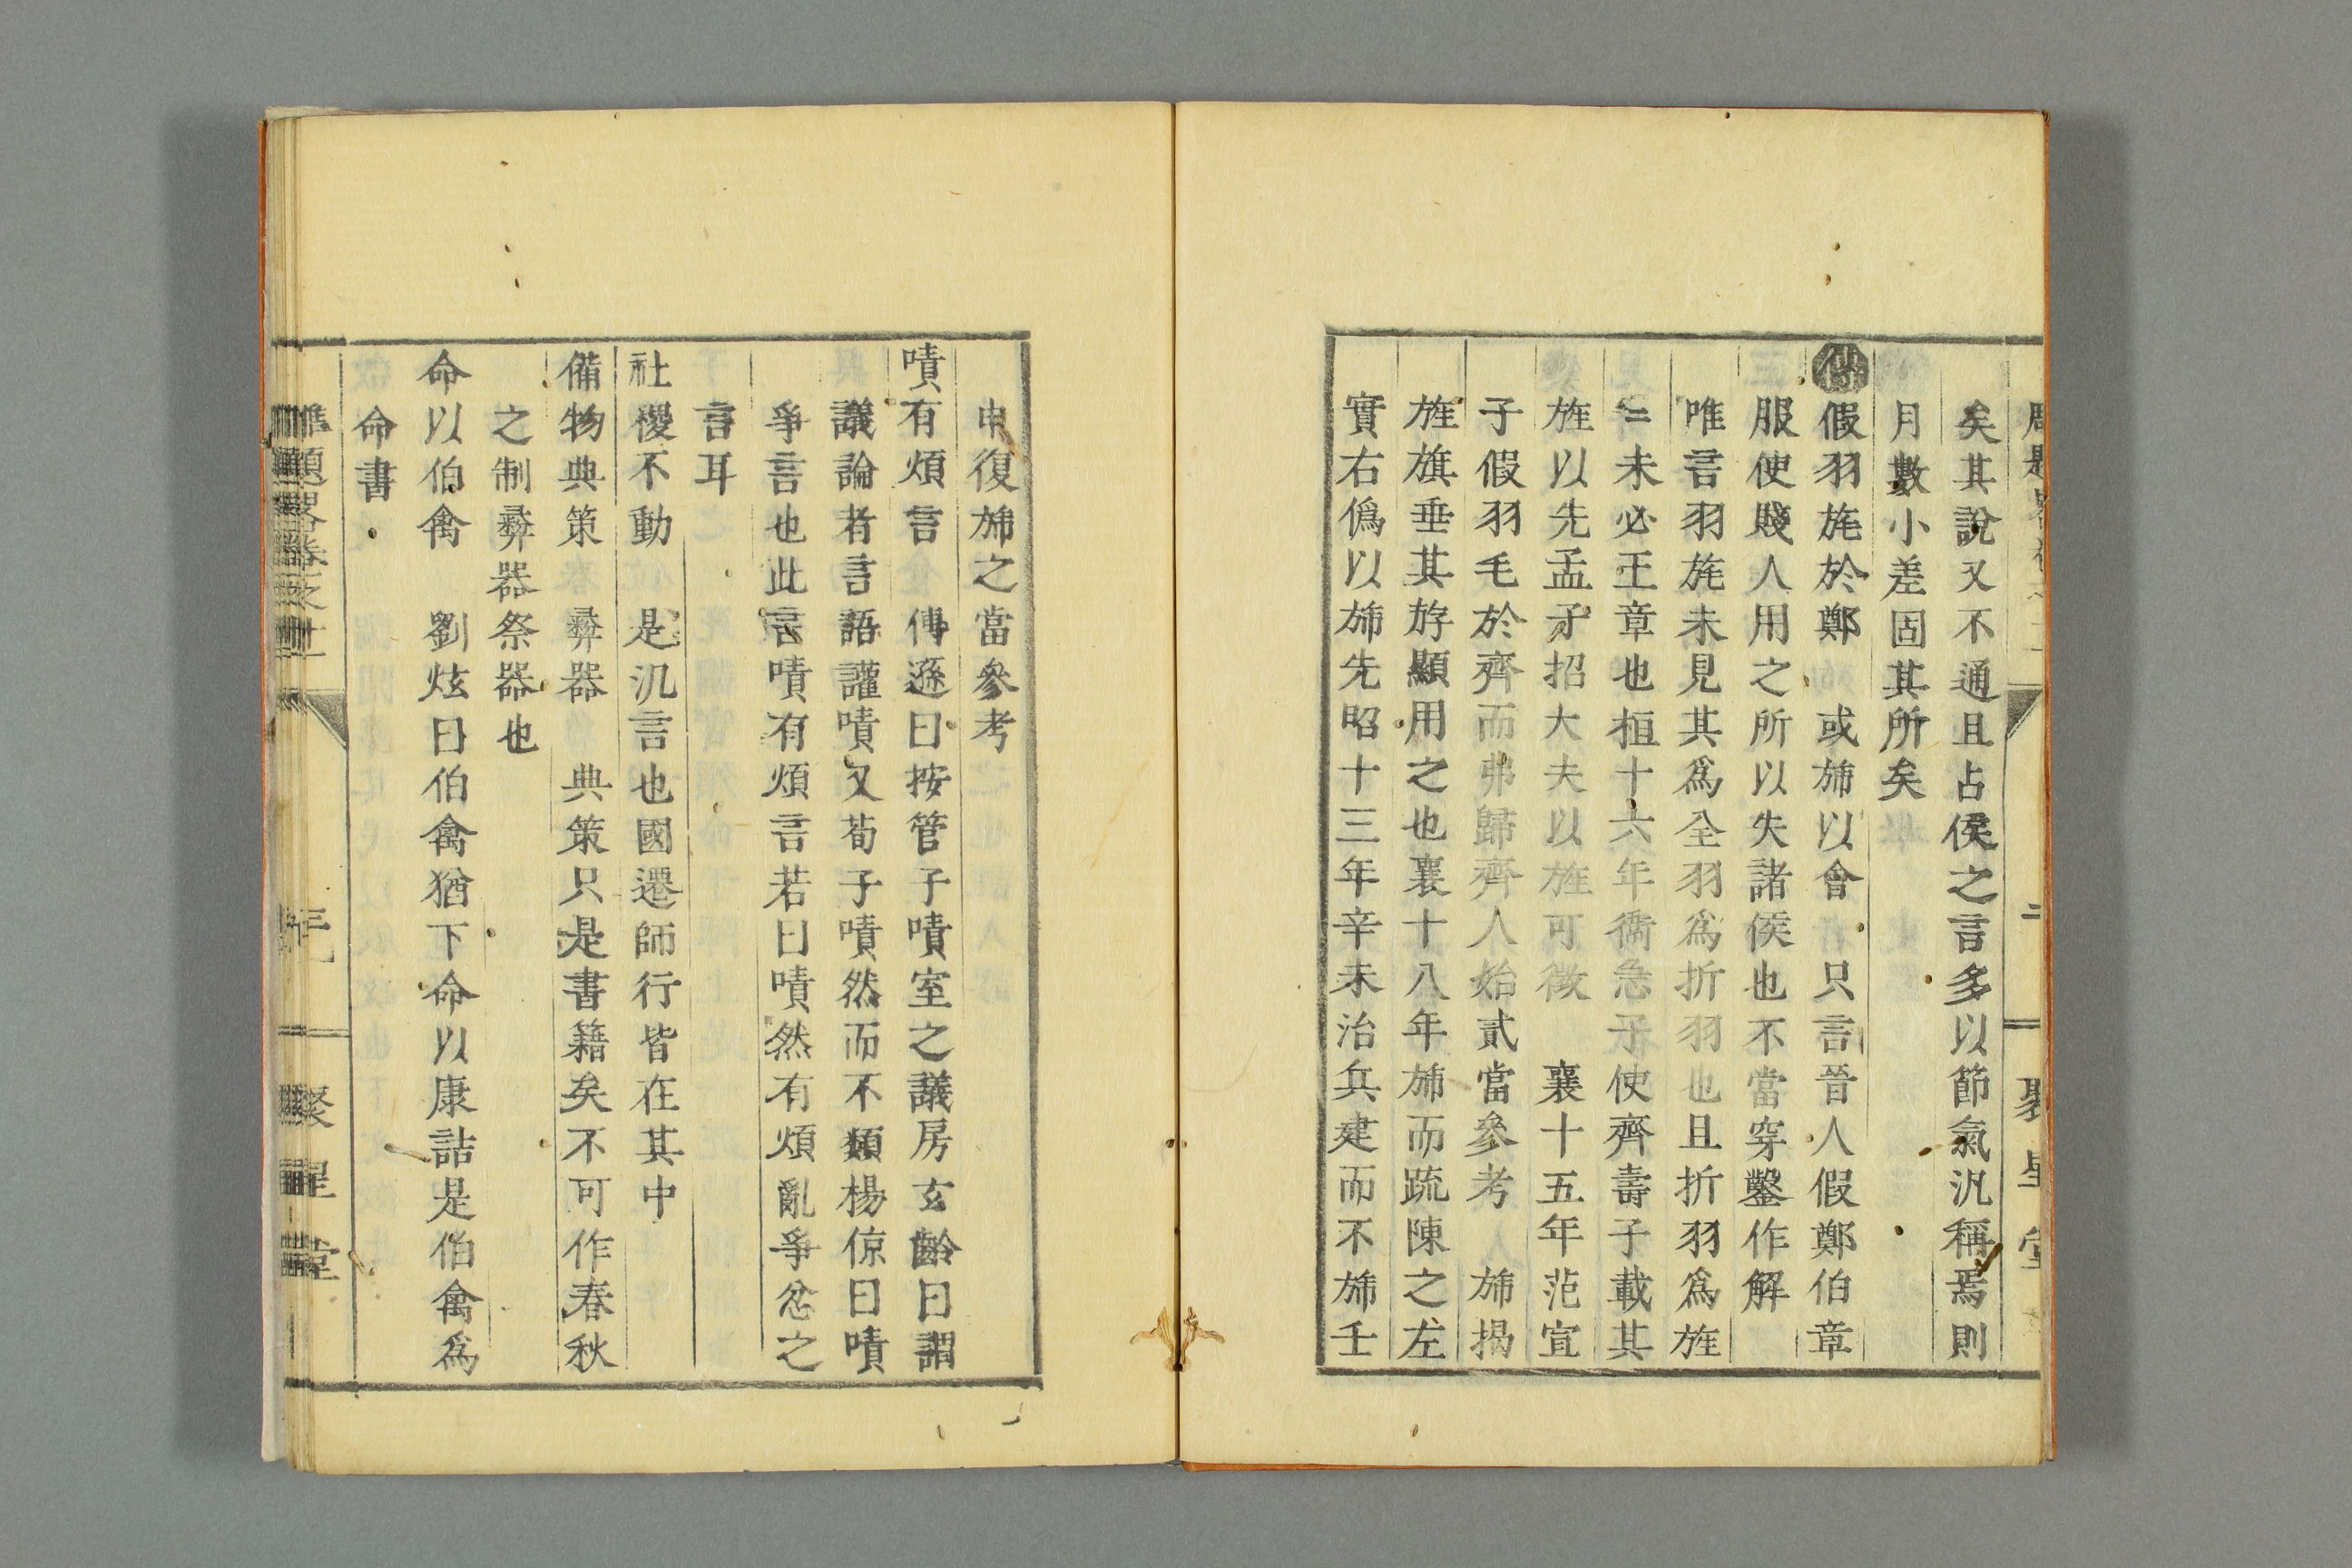 矣其說又不通且占候之言多以節氣汎稱焉則
月數小差固其所矣
傳假羽旄於鄭 或旆以會 只言晉人假鄭伯章
服使賤人用之所以失諸侯也不當穿鑿作解
唯言羽旄未見其爲全羽爲折羽也且折羽爲旌
亦未必王章也桓十六年衞急子使齊壽子載其
旌以先孟子招大夫以旌可徵 襄十五年范宣
子假羽毛於齊而弗歸齊人始貳當參考 旆揭
旌旗垂其斿顯用之也襄十八年旆而疏陳之左
實右僞以旆先昭十三年辛未治兵建而不旆壬
申復旆之當參考
嘖有煩言 傅遜曰按管子嘖室之議房玄齡曰謂
議論者言語讙嘖又荀子嘖然而不類楊倞曰嘖
爭言也此言嘖有煩言若曰嘖然有煩亂爭忿之
言耳
社稷不動 是汎言也國遷師行皆在其中
備物典策 彝器 典策只是書籍矣不可作春秋
之制彝器祭器也
命以伯禽 劉炫曰伯禽猶下命以康誥是伯禽爲
命書
題畧卷之十
聚星堂